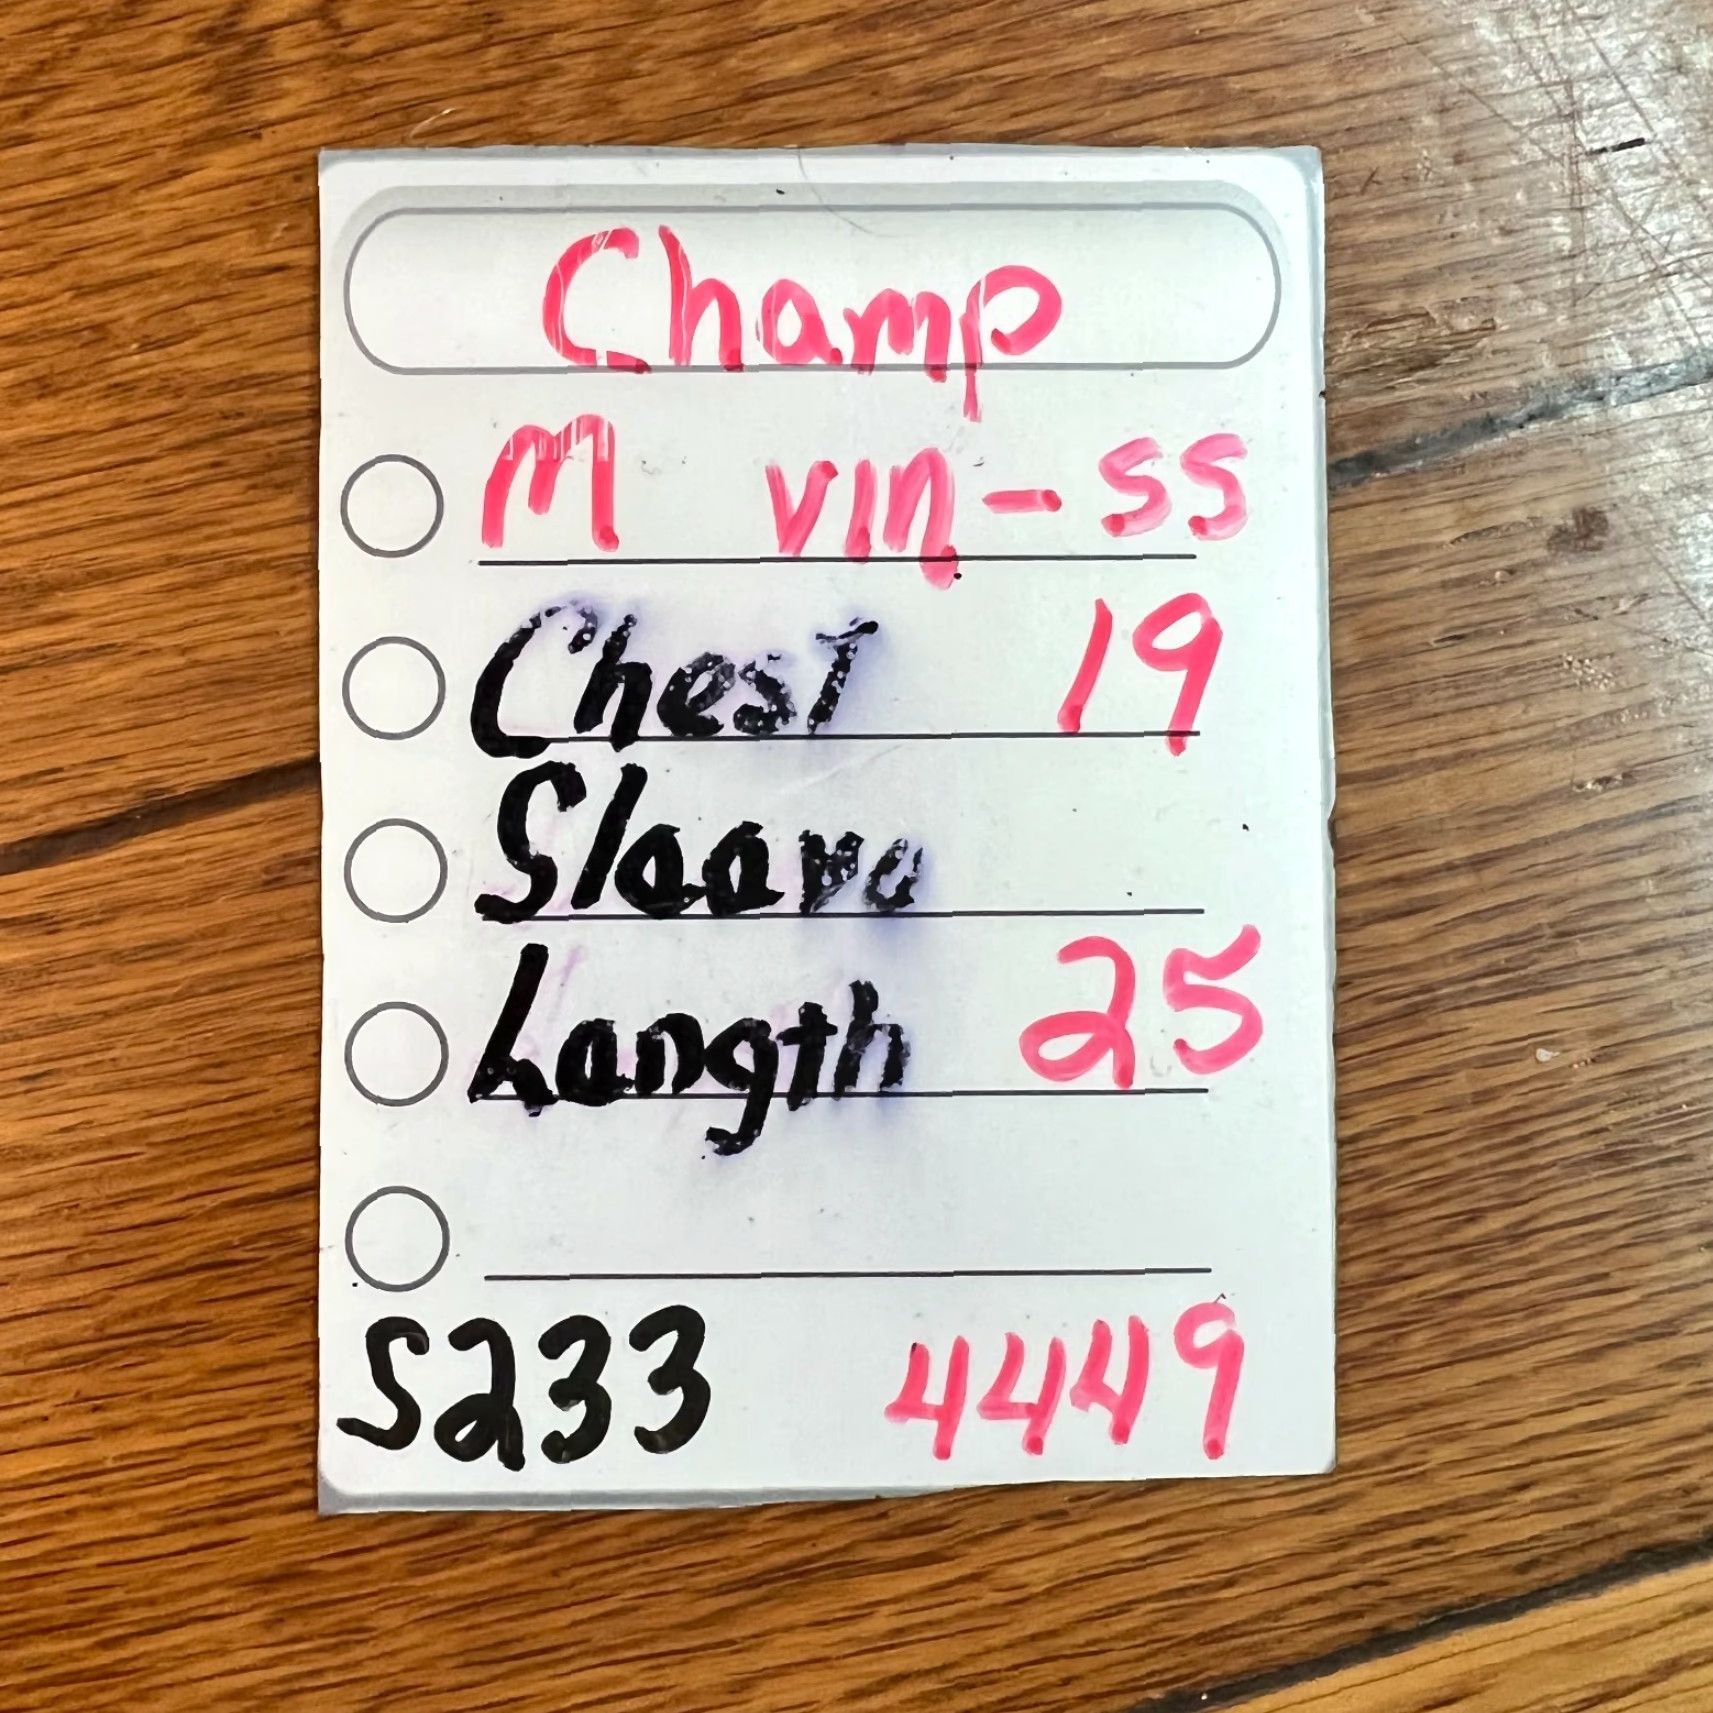 Champ
M vin-ss
Chest 19
Sleeve
Length 25
S233 4449